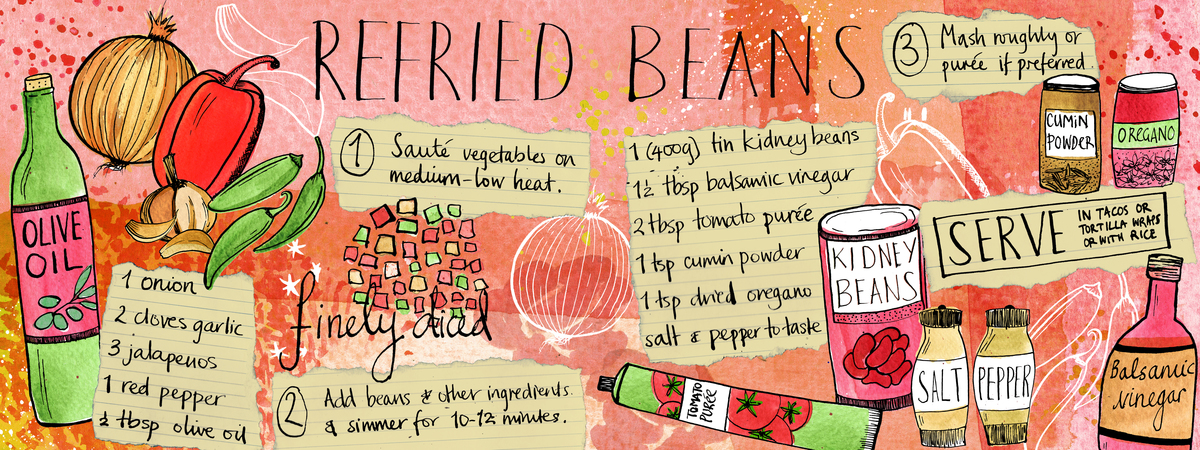 REFRIED BEANS
OLIVE
OIL
1 onion
2 cloves garlic
3 jalapenos
1 red pepper
½ tbsp olive oil
1 Sauté vegetables on
medium-low heat.
finely diced
2 Add beans & other ingredients
& simmer for 10-12 minutes.
1 (400g) tin kidney beans
1½ tbsp balsamic vinegar
2 tbsp tomato purée
1 tsp cumin powder
1 tsp dried oregano
salt & pepper to taste
TOMATO
PURÉE
KIDNEY
BEANS
3 Mash roughly or
purée if preferred.
CUMIN
POWDER
OREGANO
SERVE
IN TACOS OR
TORTILLA WRAPS
OR WITH RICE
SALT
PEPPER
Balsamic
vinegar